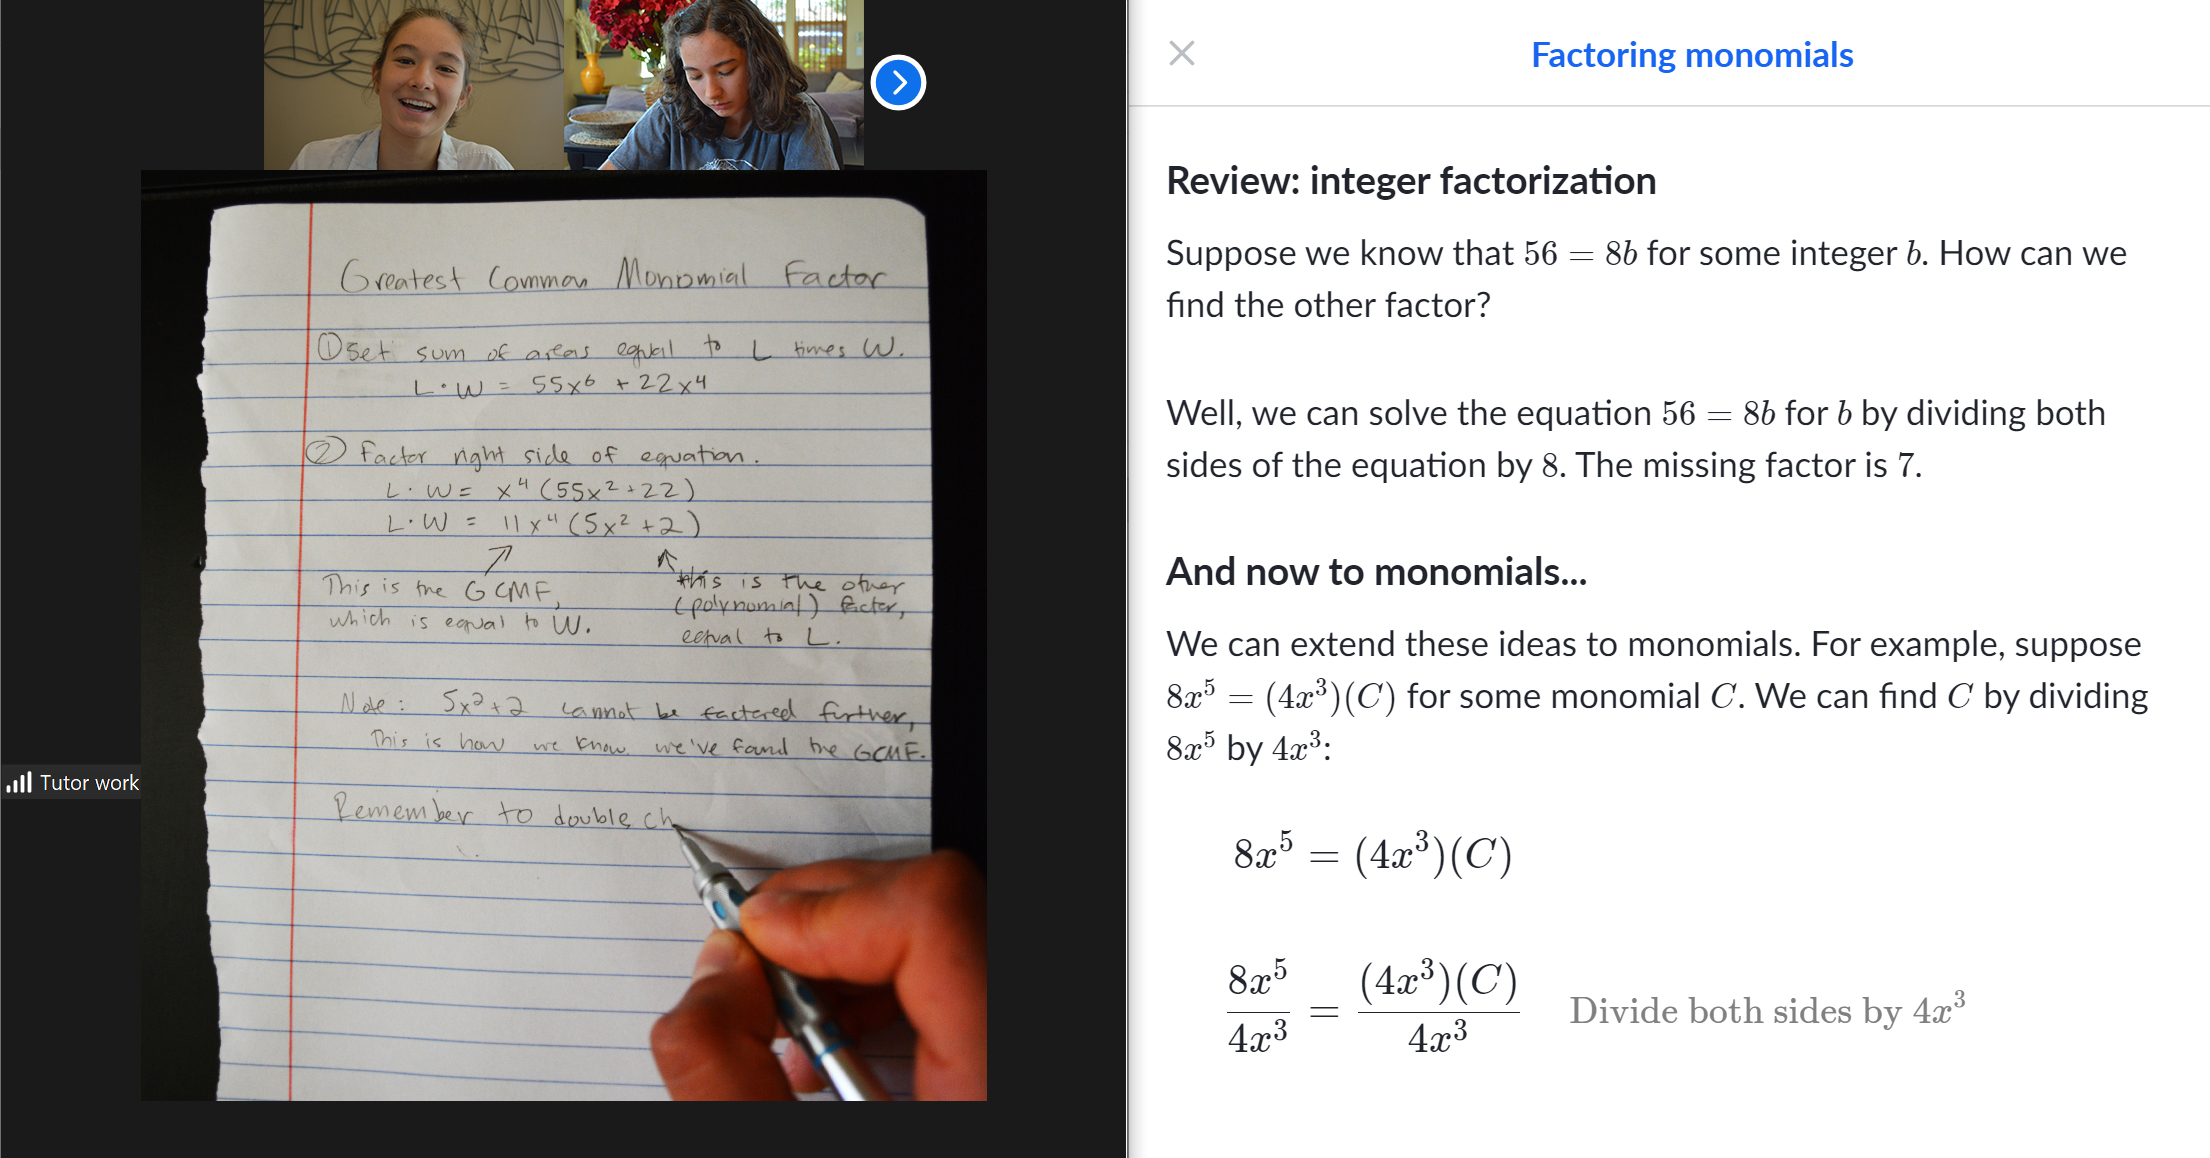 Greatest Common Monomial Factor
① Set sum of areas equal to L times W.
L · W = 55x⁶ + 22x⁴
② Factor right side of equation.
L · W = x⁴ (55x² + 22)
L · W = 11x⁴ (5x² + 2)
This is the GCMF,
which is equal to W.
this is the other
(polynomial) factor,
equal to L.
Note: 5x² + 2 cannot be factored further,
This is how we know we've found the GCMF.
Remember to double ch
Tutor work
Factoring monomials
Review: integer factorization
Suppose we know that 56 = 8b for some integer b. How can we
find the other factor?
Well, we can solve the equation 56 = 8b for b by dividing both
sides of the equation by 8. The missing factor is 7.
And now to monomials...
We can extend these ideas to monomials. For example, suppose
8x⁵ = (4x³)(C) for some monomial C. We can find C by dividing
8x⁵ by 4x³:
8x⁵ = (4x³)(C)
8x⁵/4x³ = (4x³)(C)/4x³ Divide both sides by 4x³